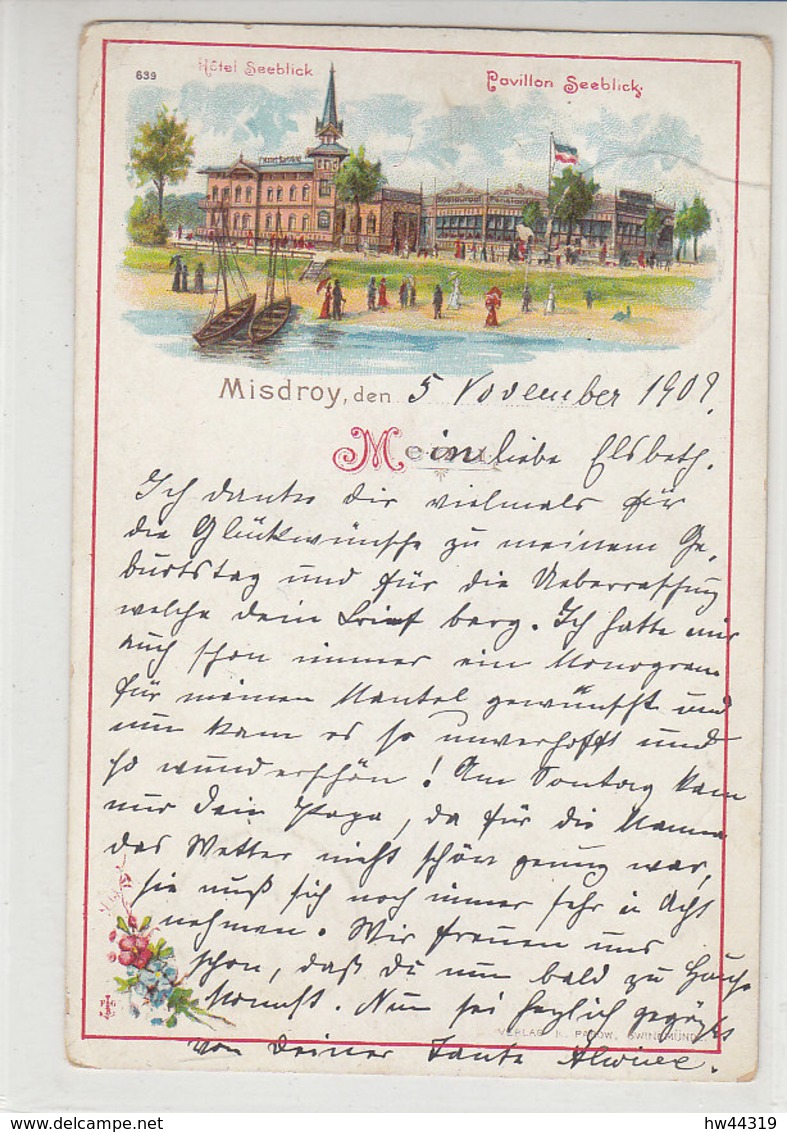 639
Hôtel Seeblick
Pavillon Seeblick.
Misdroy, den 5 November 1902.
Mein liebe Elsbeth.
Ich danke dir vielmals für
die Glückwünsche zu meinem Ge-
burtstag und für die Ueberraschung
welche dein Brief barg. Ich hatte mir
auch schon immer ein Monogram
für meinen Mantel gewünscht und
nun kam es so unverhofft und
so wunderschön! Am Sontag kam
nur dein Papa, da für die Mama
das Wetter nicht schön genug war,
sie muß sich noch immer sehr in Acht
nehmen. Wir freuen uns
schon, daß du nun bald zu Hause
kommst. Nun sei herzlich gegrüßt
VERLAG K. PAGOW, SWINEMÜNDE.
von deiner Tante Alwine.
hw44319